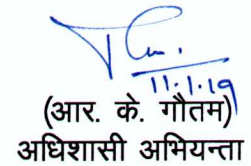 11.1.19
(आर. के. गौतम)
अधिशासी अभियन्ता